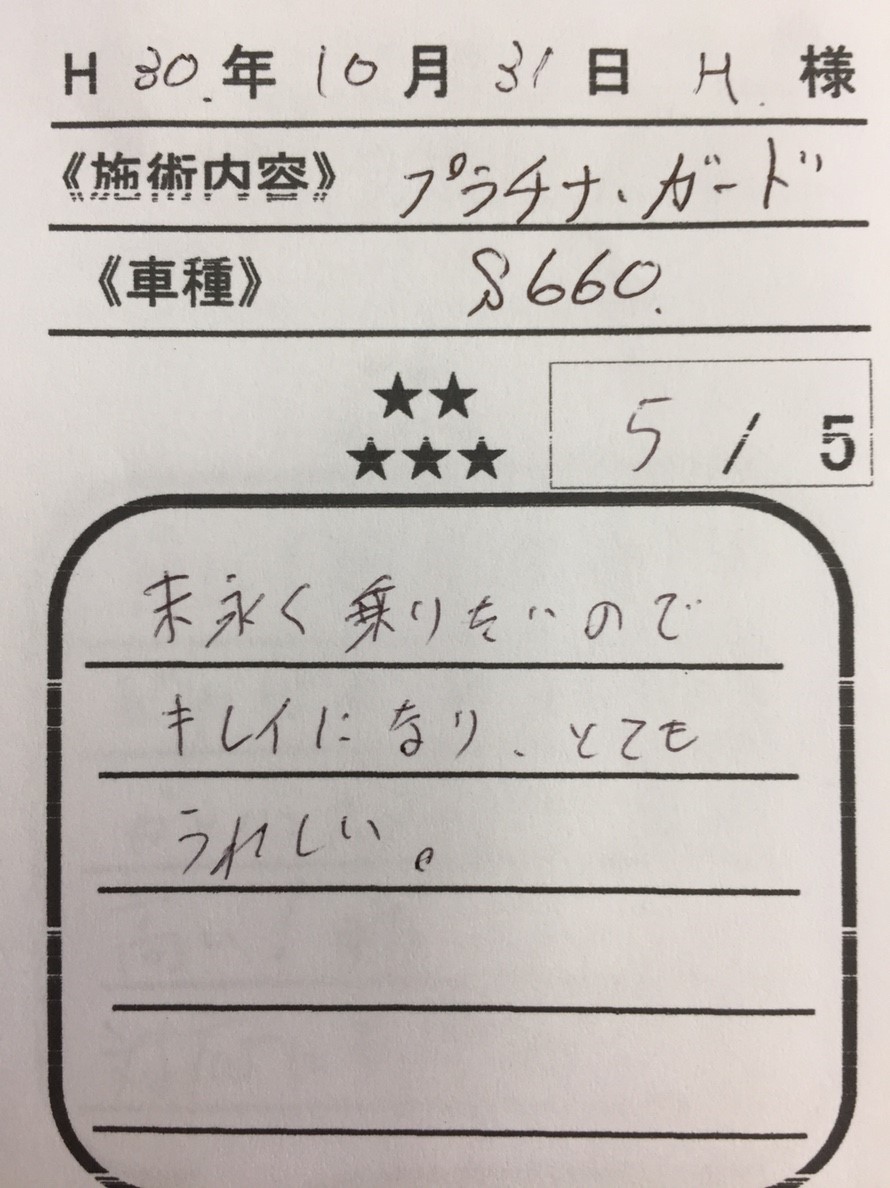 H 30.年 10月 31日 H. 様
《施術内容》 プラチナ、ガード
《車種》 S660.
★★
★★★ 5 / 5
末永く乗りたいので
キレイになり、とても
うれしい。